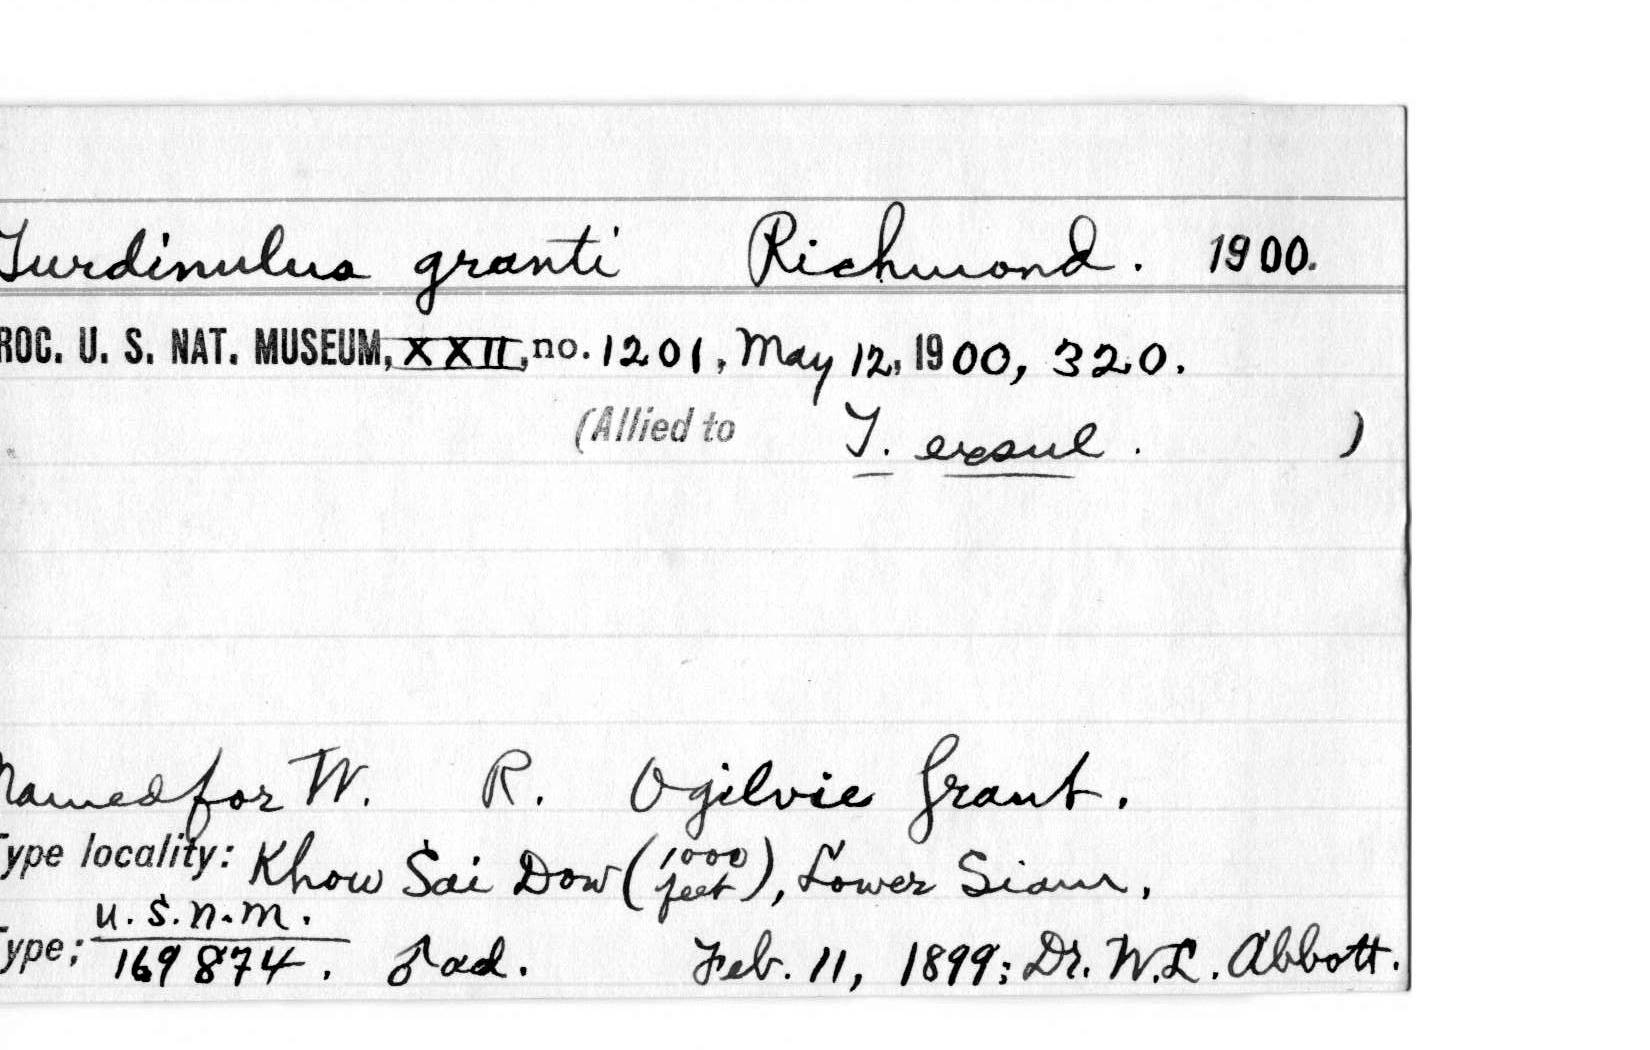 Turdinulus granti Richmond. 1900.
ROC. U. S. NAT. MUSEUM, XXII, no. 1201, May 12, 1900, 320.
(Allied to T. exsul. )
Named for W. R. Ogilvie Grant.
Type locality: Khow Sai Dow (1000 feet), Lower Siam,
Type: U.S.N.M. 169874. ♂ ad. Feb. 11, 1899; Dr. W.L. Abbott.